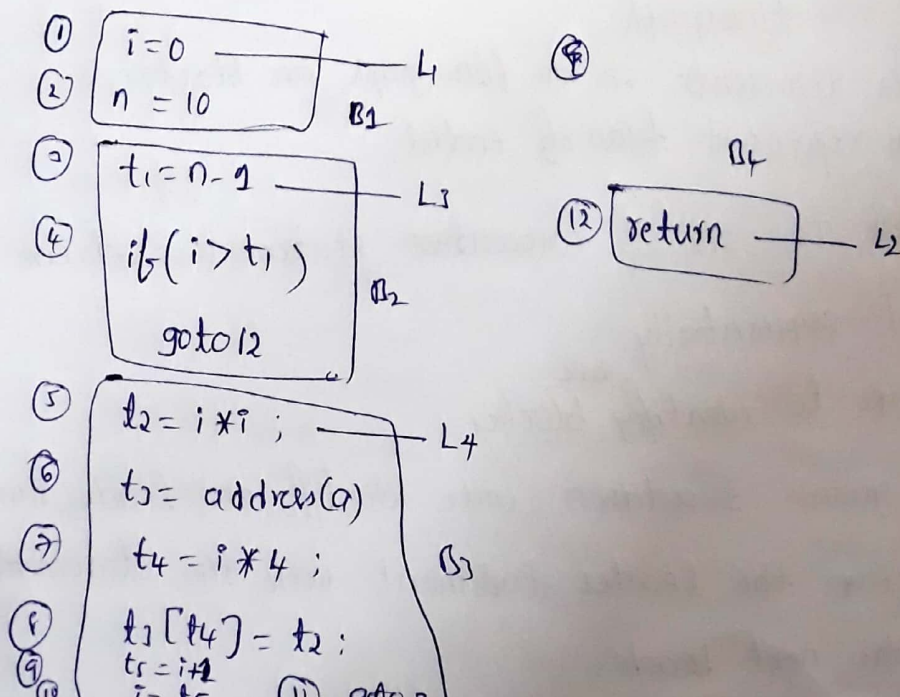 ① i=0 L1
② n = 10 B1
③ t1 = n-1 L3
④ if(i>t1)
goto12 B2
⑤ t2 = i*i ; L4
⑥ t3 = addres(a)
⑦ t4 = i*4 ; B3
⑧ t3[t4] = t2 ;
⑨ t5 = i+1
⑩ i = t5 ⑪
B4
⑫ return L2